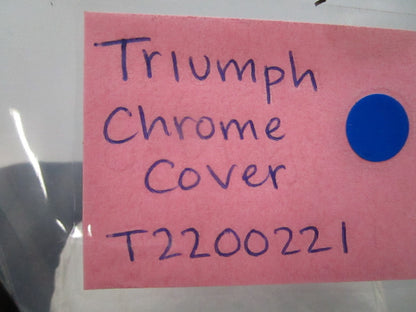 Triumph
Chrome
Cover
T2200221